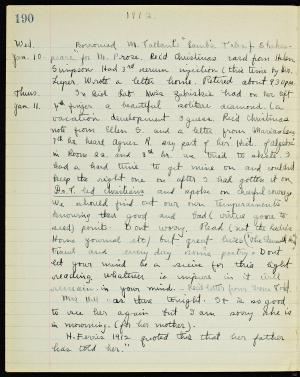 190
1912.
Wed. Borrowed Mr. Tallant's "Lamb's Tales f. Shakes-
Jan. 10. peare" for M. Prose. Rec'd Christmas card from Helen
Simpson Had 3rd serum injection (this time by Dr.
Wrote a letter home. Retired about 9:30 P.M.
Thurs. I'm told that Miss had on her left
Jan. 11. 4th finger a beautiful solitaire diamond (a
vacation development I guess. Rec'd Christmas
note from Ellen S. and a letter from
7th hr. heard Agnes R. say part of her
in Room 22. and 8th hr. we tried to skate. I
had a hard time to get mine on and couldn't
keep the right one on after I had gotten it on.
Dr. T. led and spoke on
We should find out our own temperaments
knowing the good and bad (virtue gone to
seed) point. Don't worry. Read (not the Ladies
Home Journal etc) but great lives
and every day some poetry. Don't
let your mind be a sieve for this light
reading, whatever is impure in it will
remain in your mind. Rec'd letter from
Miss Hill was there tonight. It is so good
to see her again but I am sorry she is
in mourning. (for her mother).
H. Ferris 1912 quoted this "that her father
has told her."